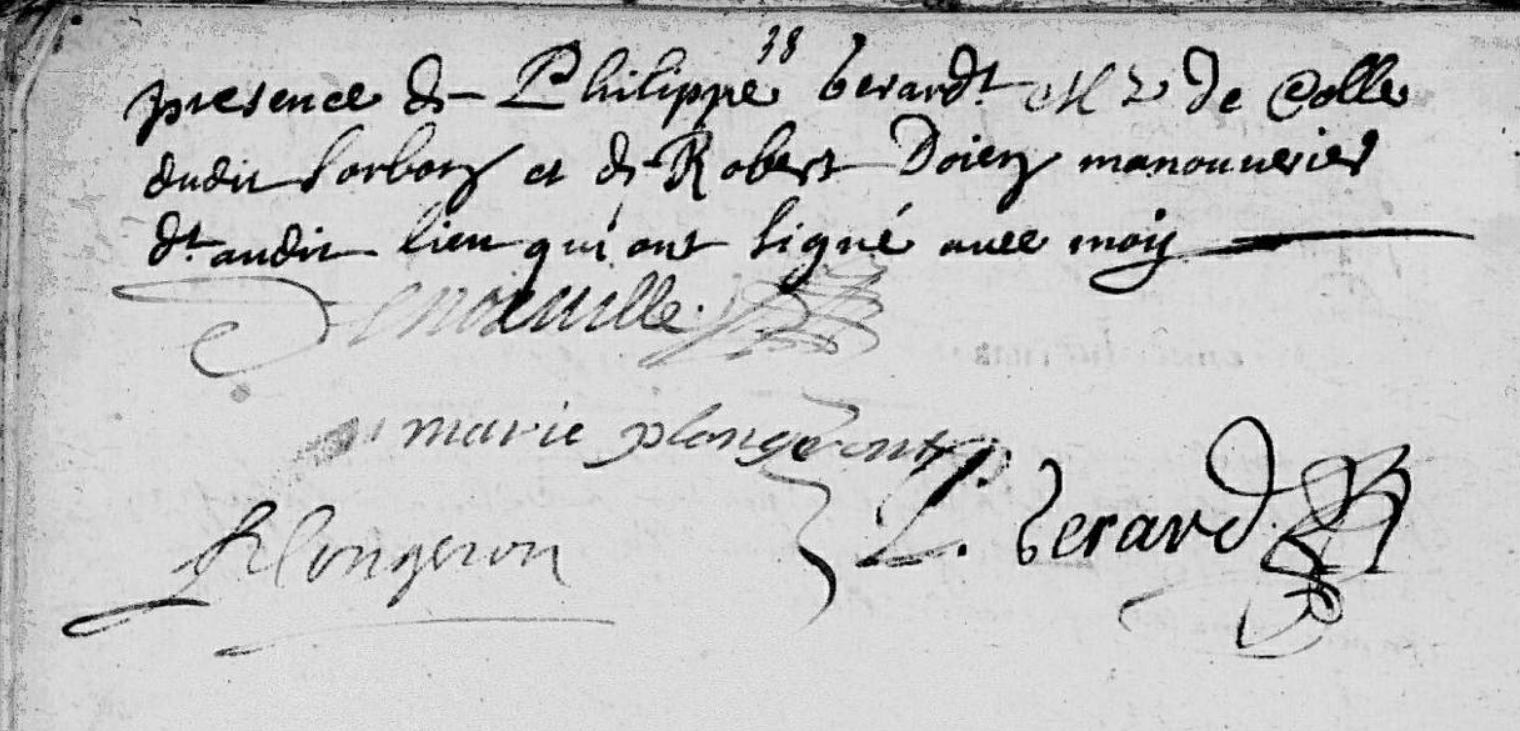 38
presence de Philippe berard Mr de Colle
dudit Sorbon et de Robert Doien manouurier
dt audit lieu qui ont signé auec moy
Denoeuille
marie plongeront
Plongeron
P. berard